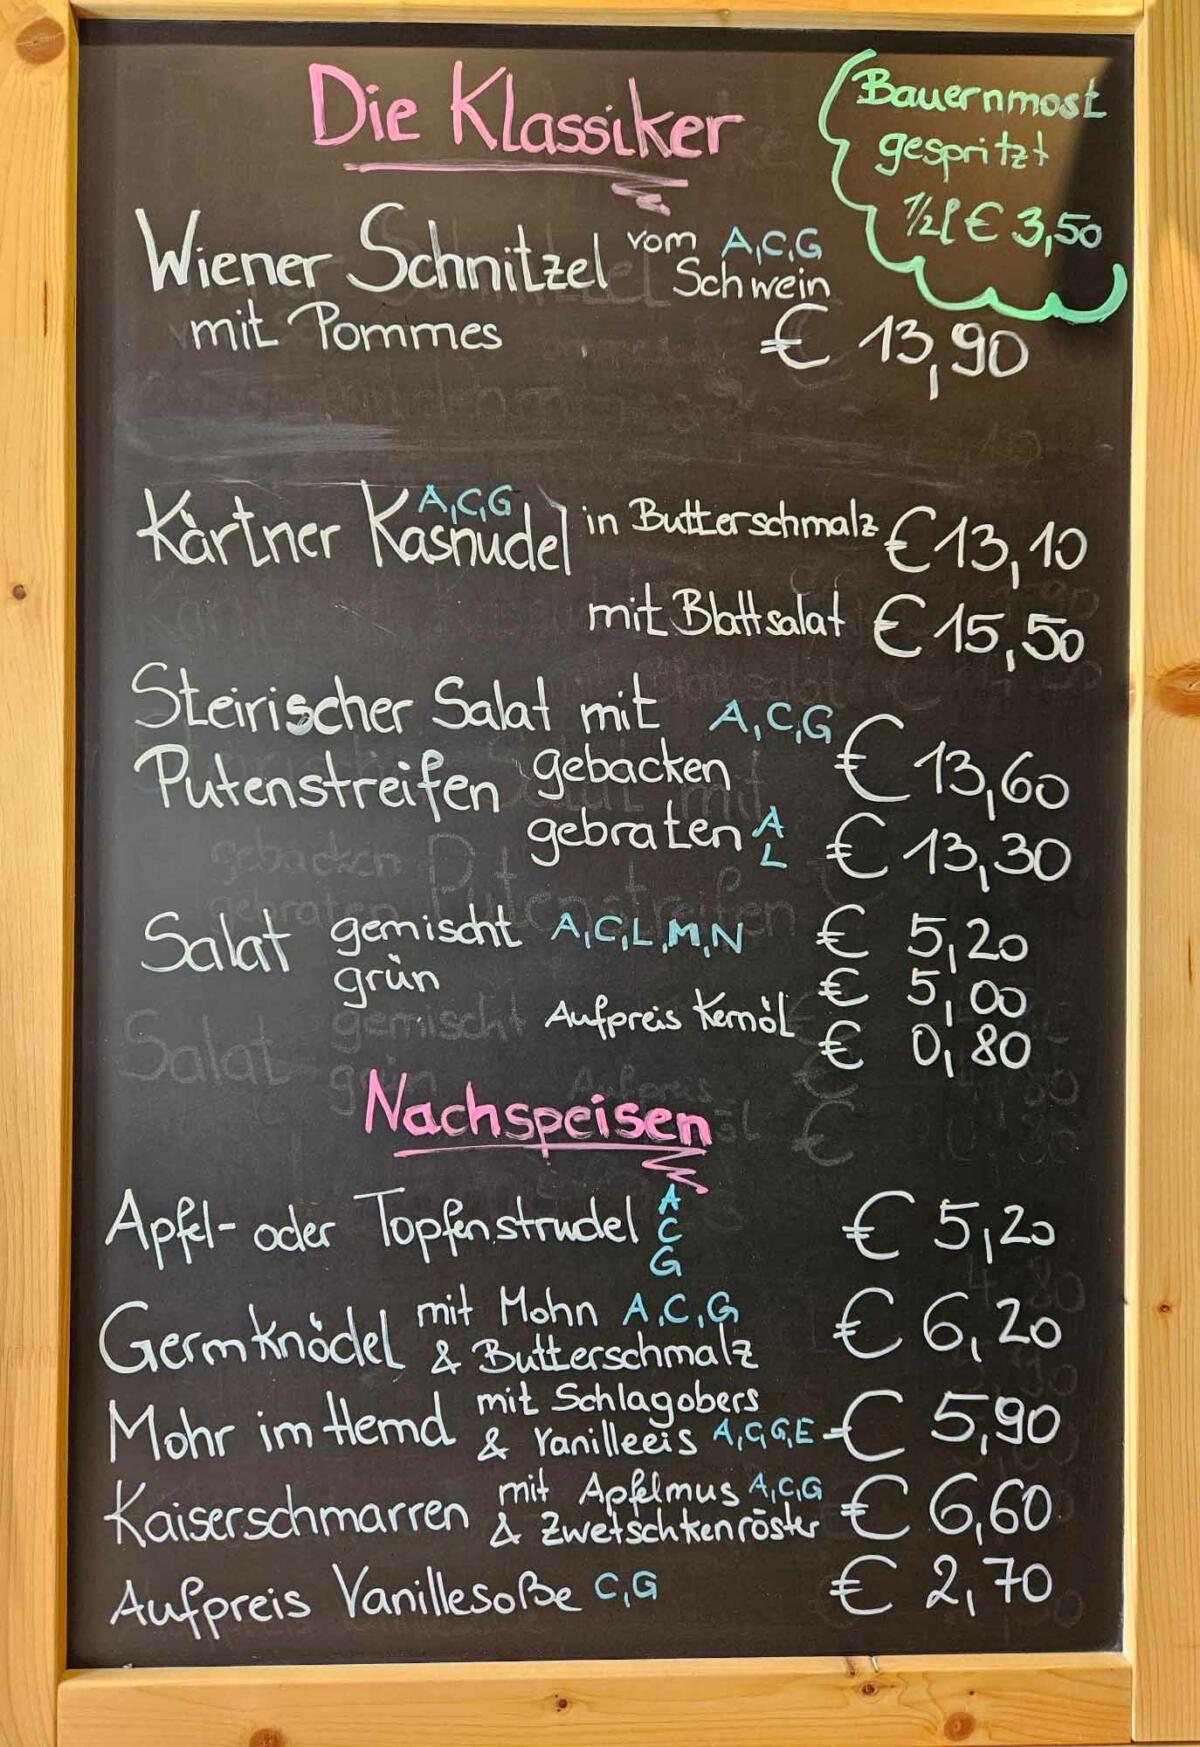 Die Klassiker
Bauernmost
gespritzt
1/2l € 3,50
Wiener Schnitzel vom A,C,G
Schwein
mit Pommes € 13,90
A,C,G
Kärtner Kasnudel in Butterschmalz € 13,10
mit Blattsalat € 15,50
Steirischer Salat mit A,C,G
Putenstreifen gebacken € 13,60
gebraten A L € 13,30
Salat gemischt A,C,L,M,N € 5,20
grün € 5,00
Aufpreis Kernöl € 0,80
Nachspeisen
Apfel- oder Topfenstrudel A C G € 5,20
Germknödel mit Mohn A,C,G € 6,20
& Butterschmalz
Mohr im Hemd mit Schlagobers
& Vanilleeis A,C,G,E € 5,90
Kaiserschmarren mit Apfelmus A,C,G € 6,60
& Zwetschkenröster
Aufpreis Vanillesoße C,G € 2,70